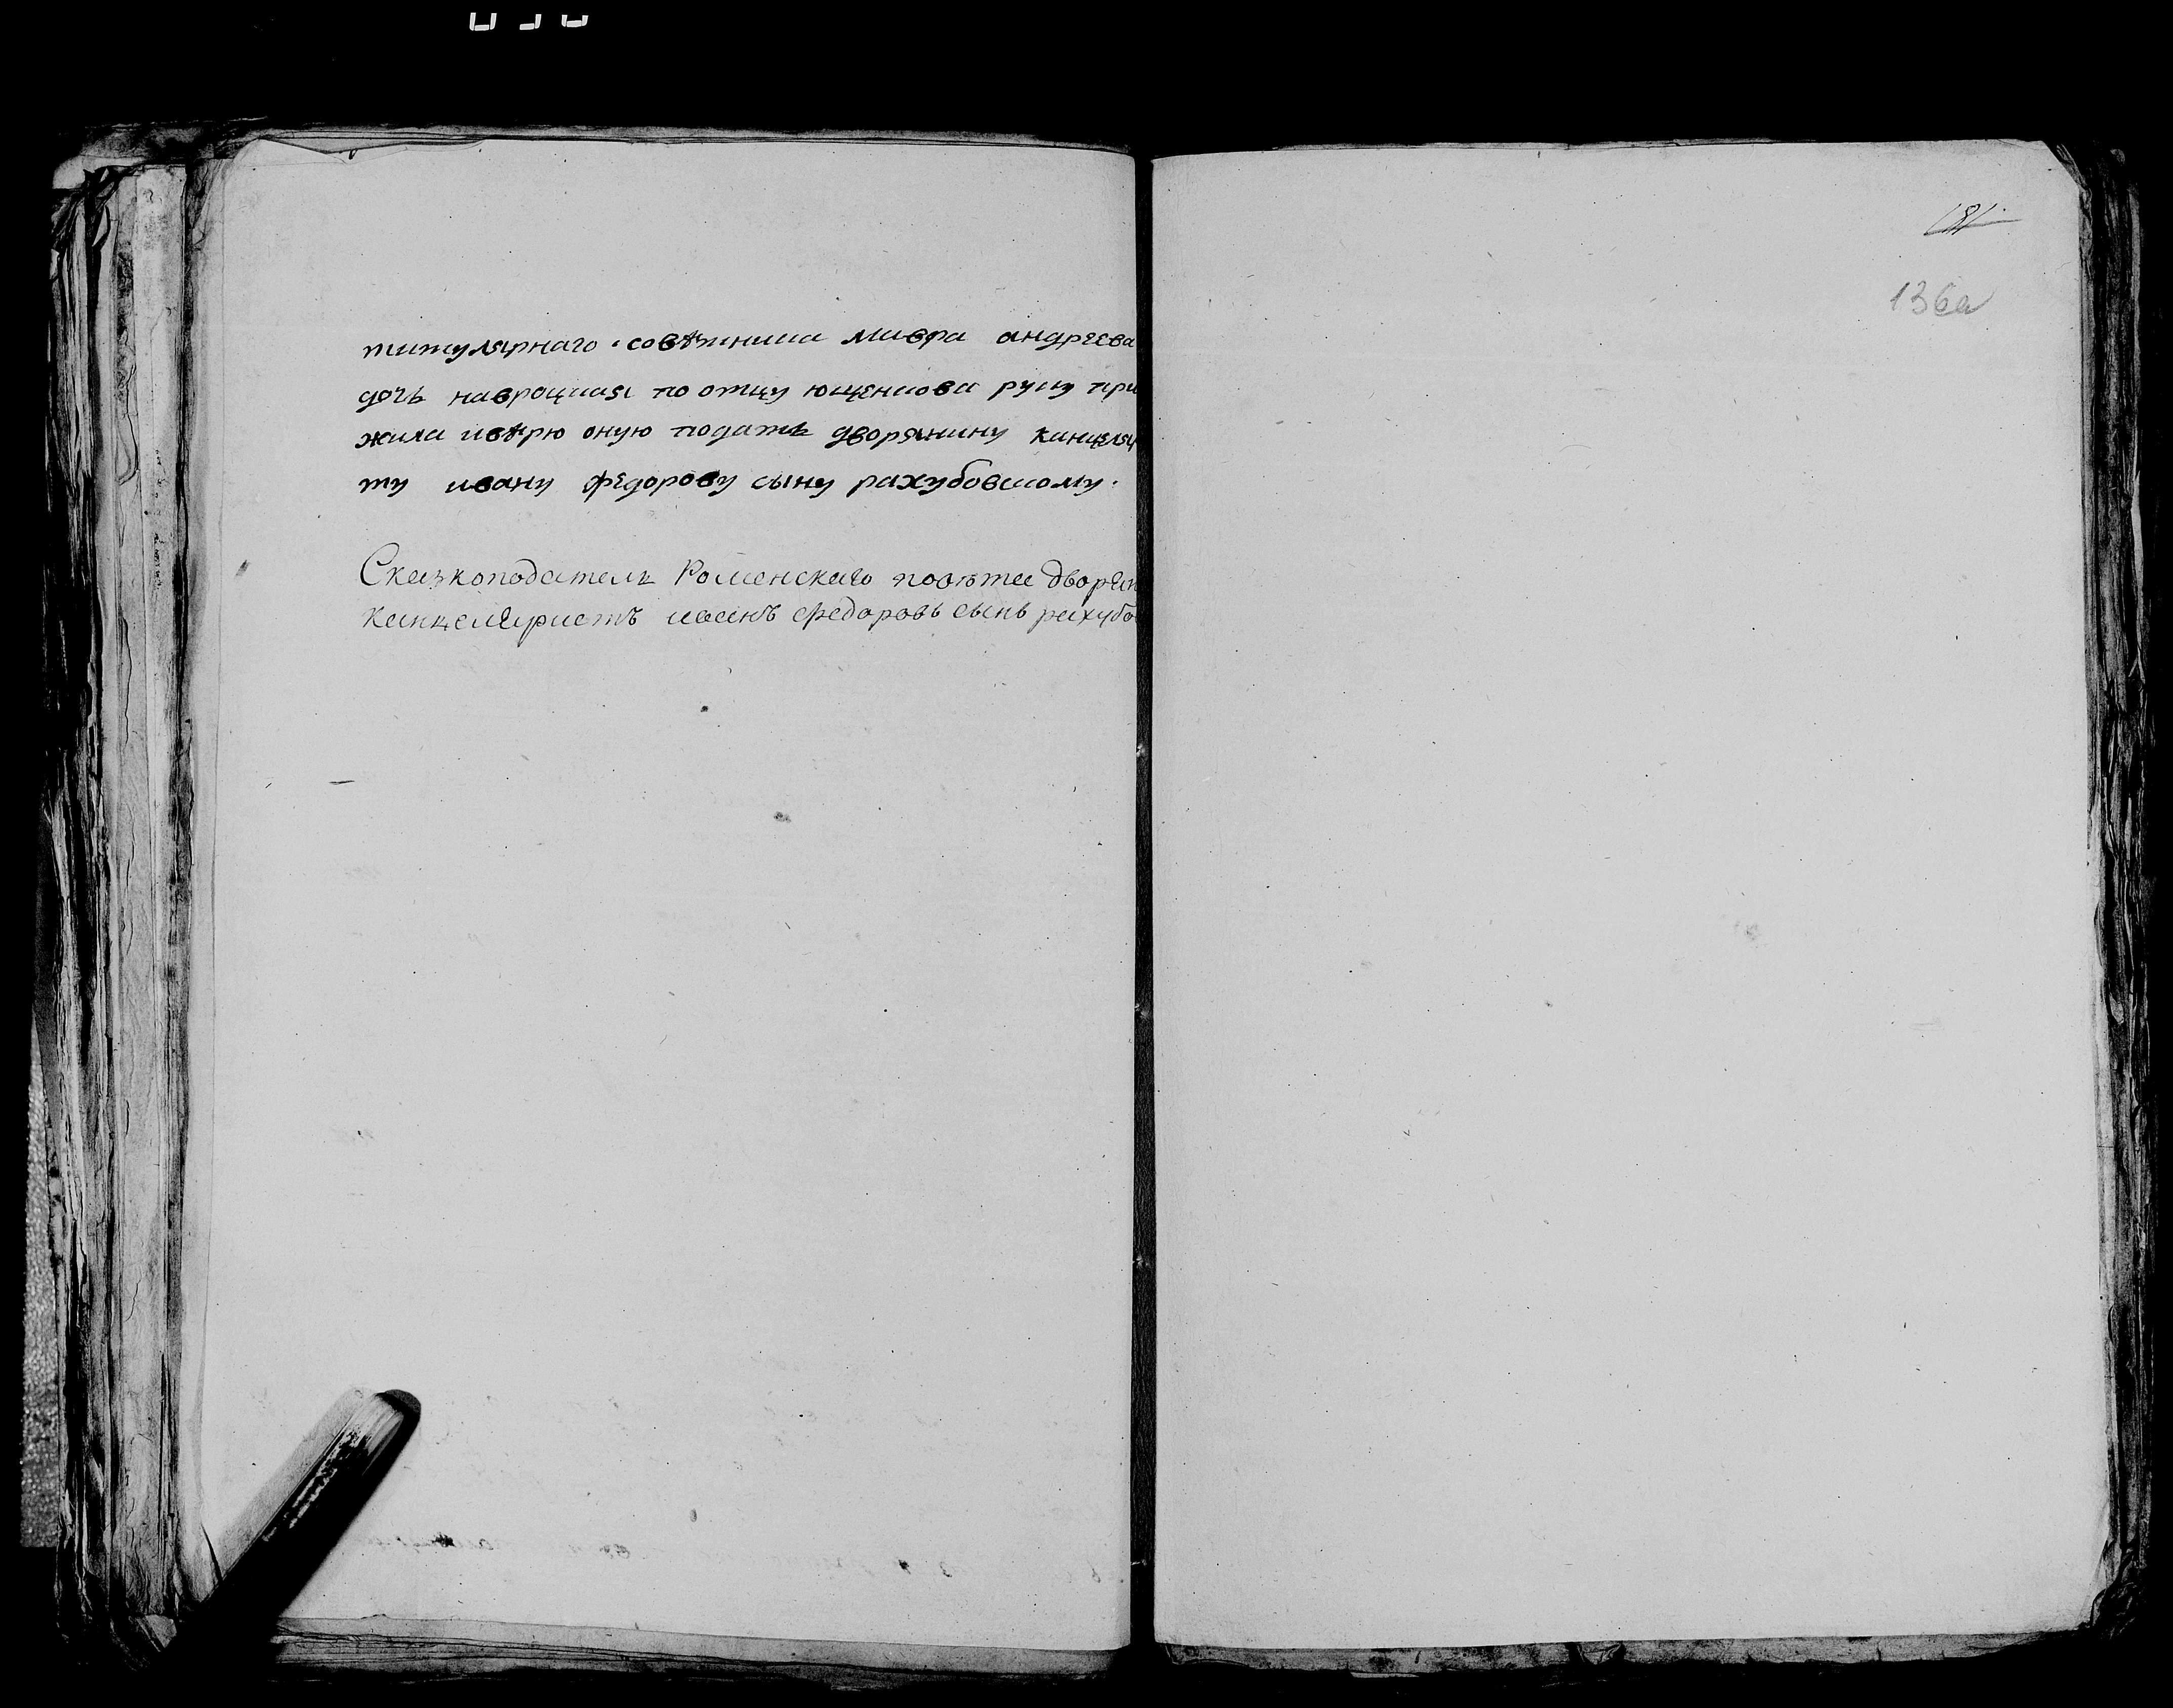 титулярнаго совѣтника мавра андреева
дочь навроцкая по отцу ющенкова руку при
жила ивѣрю оную подать дворянину канцеля
ту ивану федорову сыну рахубовскому.
Сказкоподатель Роменскаго повѣта дворян
канцеляристъ иванъ федоровъ сынъ рахубо
181
136а